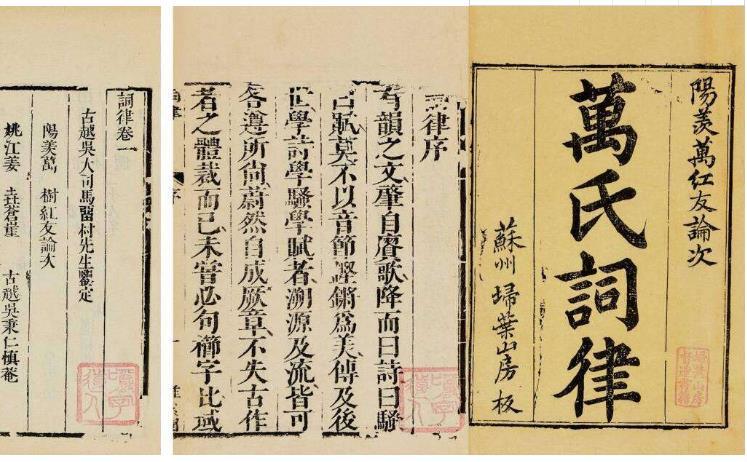 陽羨萬紅友論次
萬氏詞律
蘇州埽葉山房板
律序
有韻之文肇自賡歌降而曰詩曰騷
曰賦莫不以音節鏗鏘為美傳及後
世學詩學騷學賦者溯源及流皆可
各遵所尚蔚然自成厥章不失古作
者之體裁而已未嘗必句櫛字比或
詞律卷一
古越吳大司馬留村先生鑒定
陽羨萬 樹紅友論次
姚江姜 垚蒼崖 古越吳秉仁慎菴